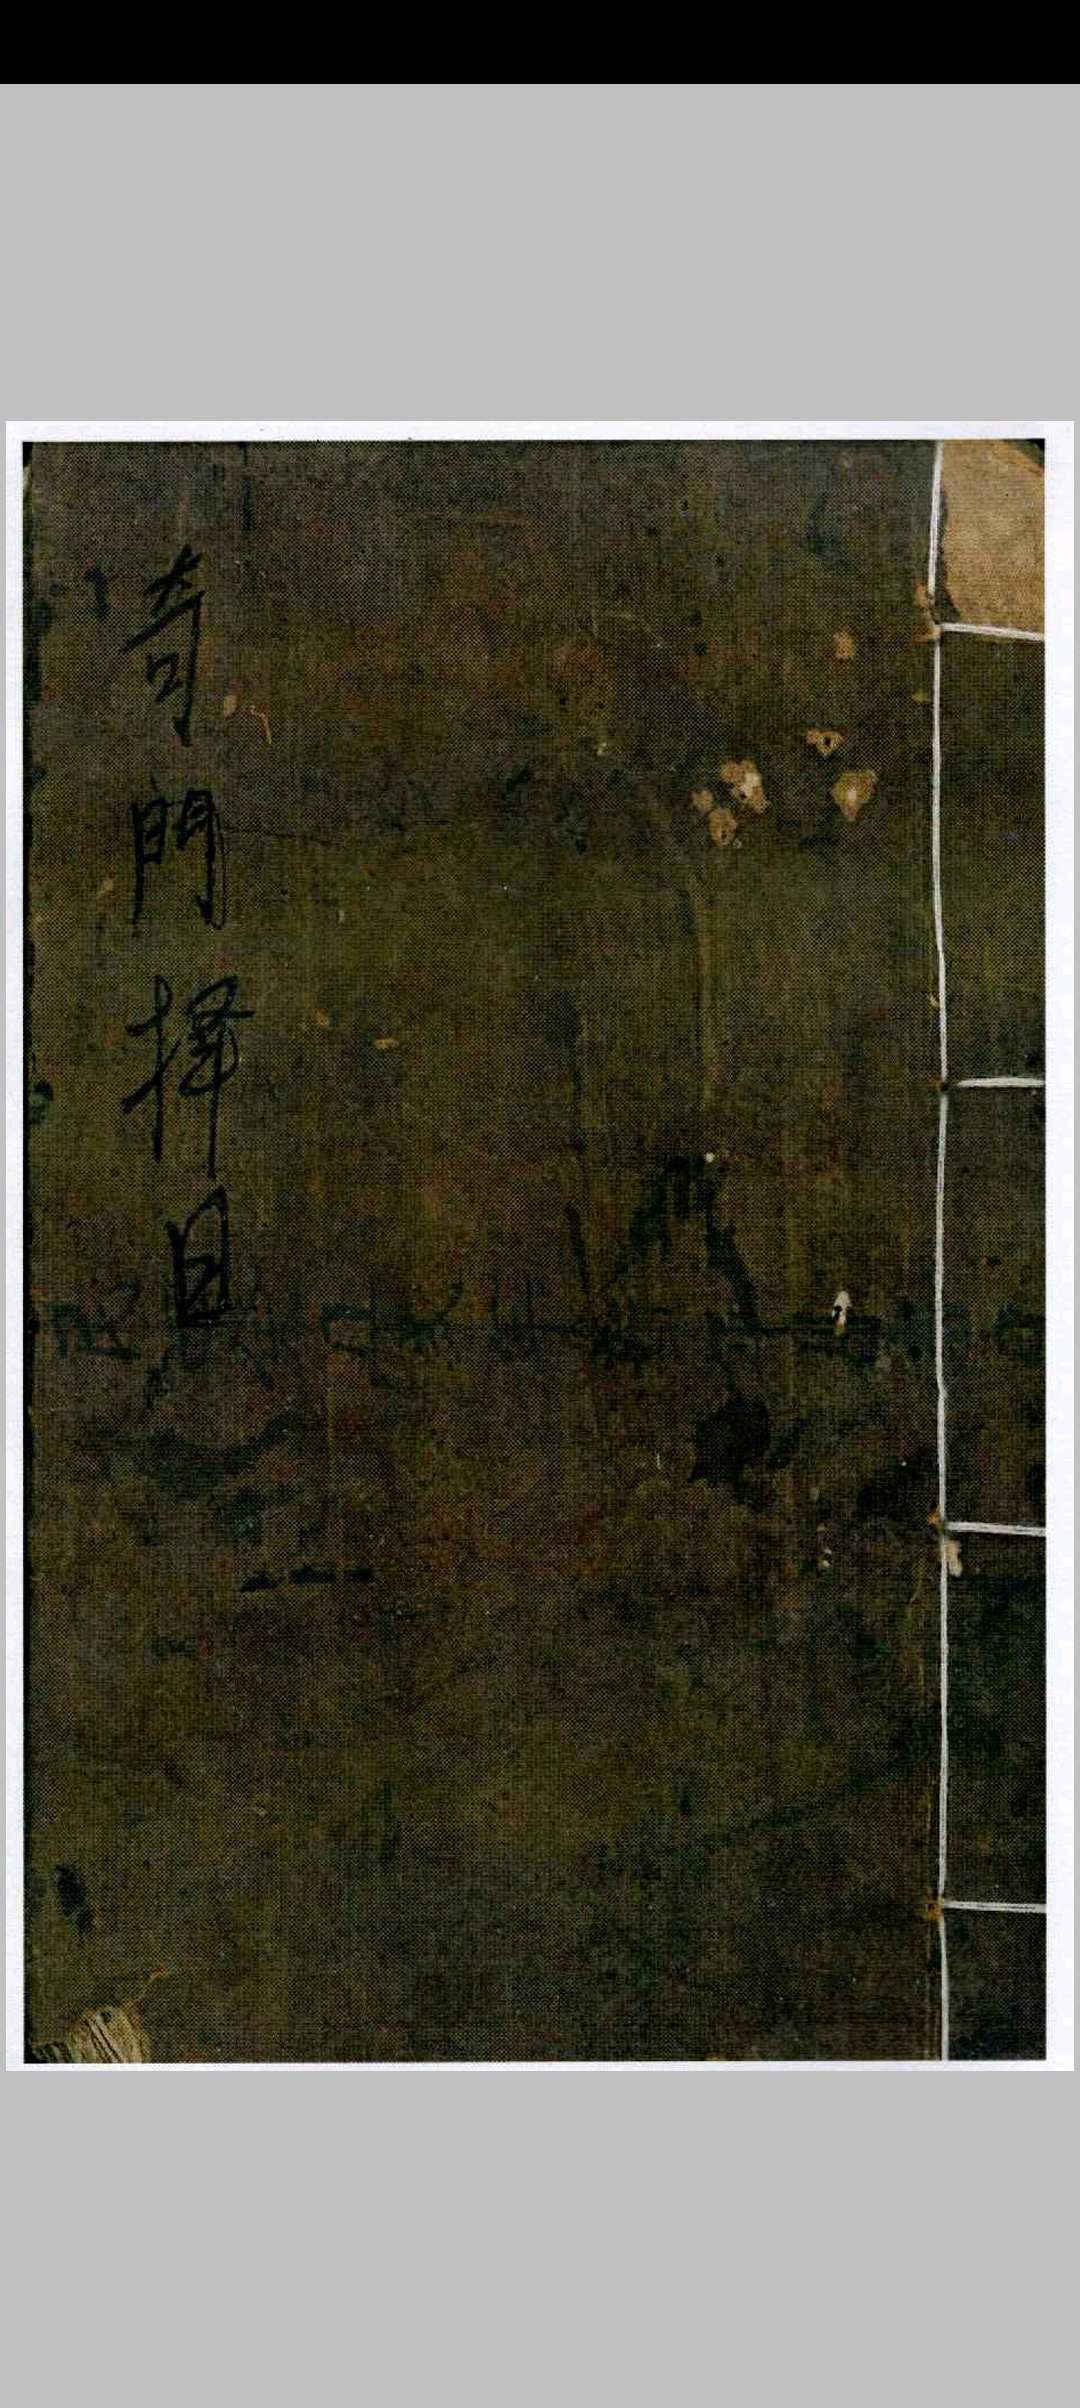 奇門擇日